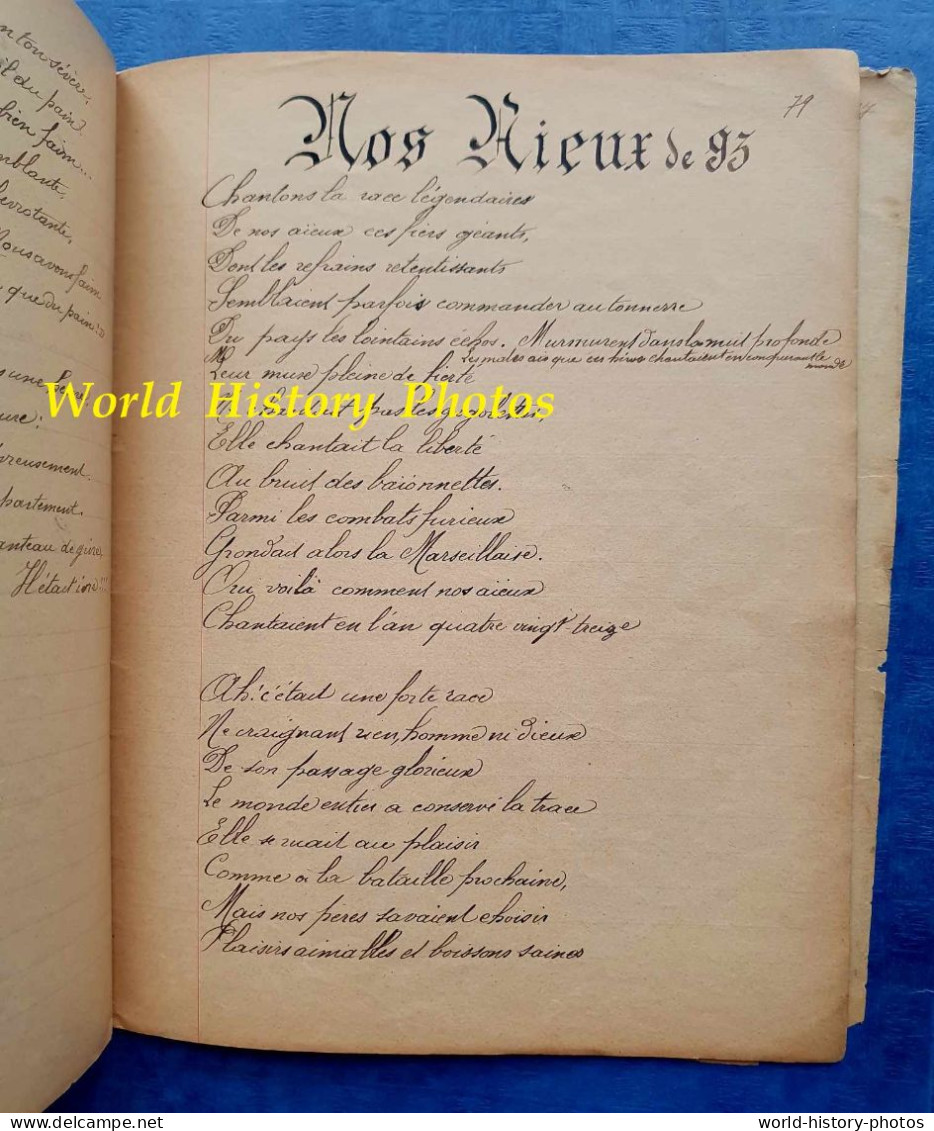 n ton sévère,
il du pain.
bien faim...
mblante,
Nous avons faim
que du pain!»
s une
ure!
reusement.
partement.
anteau de givre
79
Nos Aieux de 93
Chantons la race légendaires
De nos aïeux ces fiers géants,
Dont les refrains retentissants
Semblaient parfois commander au tonnerre
Du pays les lointains échos. Murmurent dans la nuit profonde
Les males airs que ces héros chantaient en conquerant le monde
Leur muse pleine de fierté
World History Photos
Elle chantait la liberté
Au bruit des baïonnettes.
Parmi les combats furieux
Grondait alors la Marseillaise.
Oui voilà comment nos aïeux
Chantaient en l'an quatre vingt-treize
Ah! c'était une forte race
Ne craignant rien, homme ni dieux
De son passage glorieux
Le monde entier a conservé la trace
Elle se ruait au plaisir
Comme à la bataille prochaine,
Mais nos pères savaient choisir
Plaisirs aimables et boissons saines
delcampe.net
world-history-photos